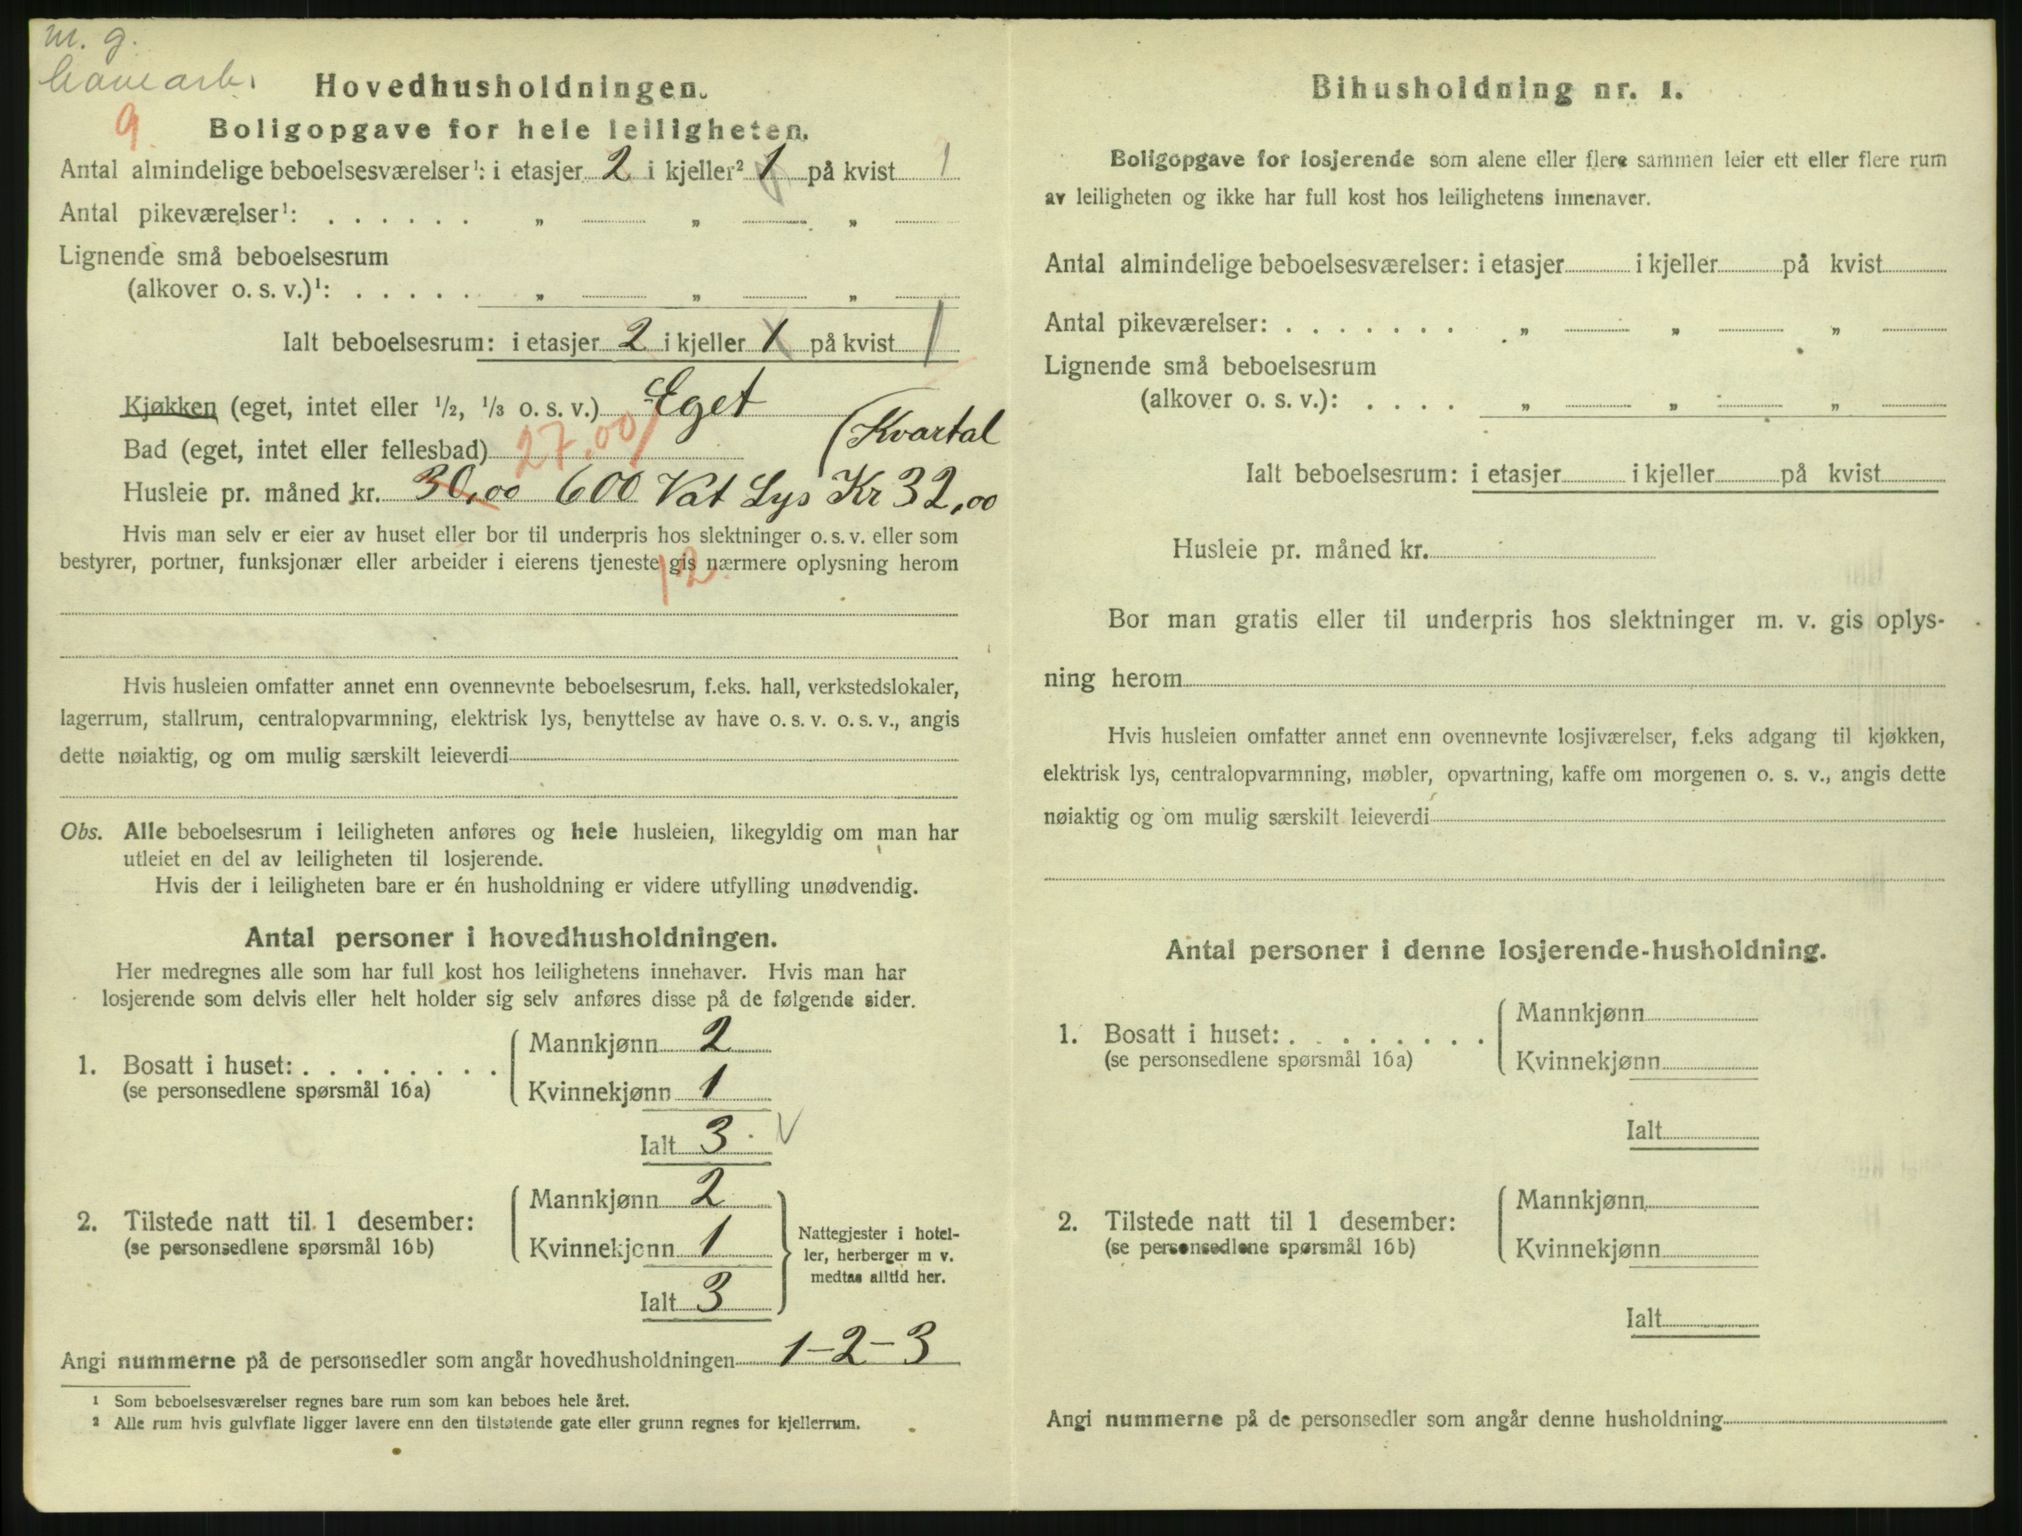 m. g.
Hovedhusholdningen.
9
Boligopgave for hele leiligheten.
Antal almindelige beboelsesværelser¹: i etasjer 2 i kjeller² 1 på kvist 1
Antal pikeværelser¹: . . . . . . „ „ „
Lignende små beboelsesrum
(alkover o. s. v.)¹: . . . . . „ „ „
Ialt beboelsesrum: i etasjer 2 i kjeller 1 på kvist 1
Kjøkken (eget, intet eller 1/2, 1/3 o. s. v.) Eget
Bad (eget, intet eller fellesbad) 27.00 (Kvartal
Husleie pr. måned kr. 30,00 600 Vat Lys Kr 32,00
Hvis man selv er eier av huset eller bor til underpris hos slektninger o. s. v. eller som
bestyrer, portner, funksjonær eller arbeider i eierens tjeneste gis nærmere oplysning herom
12.
Hvis husleien omfatter annet enn ovennevnte beboelsesrum, f.eks. hall, verkstedslokaler,
lagerrum, stallrum, centralopvarmning, elektrisk lys, benyttelse av have o. s. v. o. s. v., angis
dette nøiaktig, og om mulig særskilt leieverdi
Obs. Alle beboelsesrum i leiligheten anføres og hele husleien, likegyldig om man har
utleiet en del av leiligheten til losjerende.
Hvis der i leiligheten bare er én husholdning er videre utfylling unødvendig.
Antal personer i hovedhusholdningen.
Her medregnes alle som har full kost hos leilighetens innehaver. Hvis man har
losjerende som delvis eller helt holder sig selv anføres disse på de følgende sider.
1. Bosatt i huset: . . . . . . . .
(se personsedlene spørsmål 16a)
Mannkjønn 2
Kvinnekjønn 1
Ialt 3
2. Tilstede natt til 1 desember:
(se personsedlene spørsmål 16b)
Mannkjønn 2
Kvinnekjønn 1
Ialt 3
Nattegjester i hotel-
ler, herberger m v.
medtas alltid her.
Angi nummerne på de personsedler som angår hovedhusholdningen 1-2-3
¹ Som beboelsesværelser regnes bare rum som kan beboes hele året.
² Alle rum hvis gulvflate ligger lavere enn den tilstøtende gate eller grunn regnes for kjellerrum.
Bihusholdning nr. 1.
Boligopgave for losjerende som alene eller flere sammen leier ett eller flere rum
av leiligheten og ikke har full kost hos leilighetens innenaver.
Antal almindelige beboelsesværelser: i etasjer i kjeller på kvist
Antal pikeværelser: . . . . . . . „ „ „
Lignende små beboelsesrum
(alkover o. s. v.): . . . . „ „ „
Ialt beboelsesrum: i etasjer i kjeller på kvist
Husleie pr. måned kr.
Bor man gratis eller til underpris hos slektninger m. v. gis oplys-
ning herom
Hvis husleien omfatter annet enn ovennevnte losjiværelser, f.eks adgang til kjøkken,
elektrisk lys, centralopvarmning, møbler, opvartning, kaffe om morgenen o. s. v., angis dette
nøiaktig og om mulig særskilt leieverdi
Antal personer i denne losjerende-husholdning.
1. Bosatt i huset: . . . . . . . .
(se personsedlene spørsmål 16a)
Mannkjønn
Kvinnekjønn
Ialt
2. Tilstede natt til 1 desember:
(se personsedlene spørsmål 16b)
Mannkjønn
Kvinnekjønn
Ialt
Angi nummerne på de personsedler som angår denne husholdning